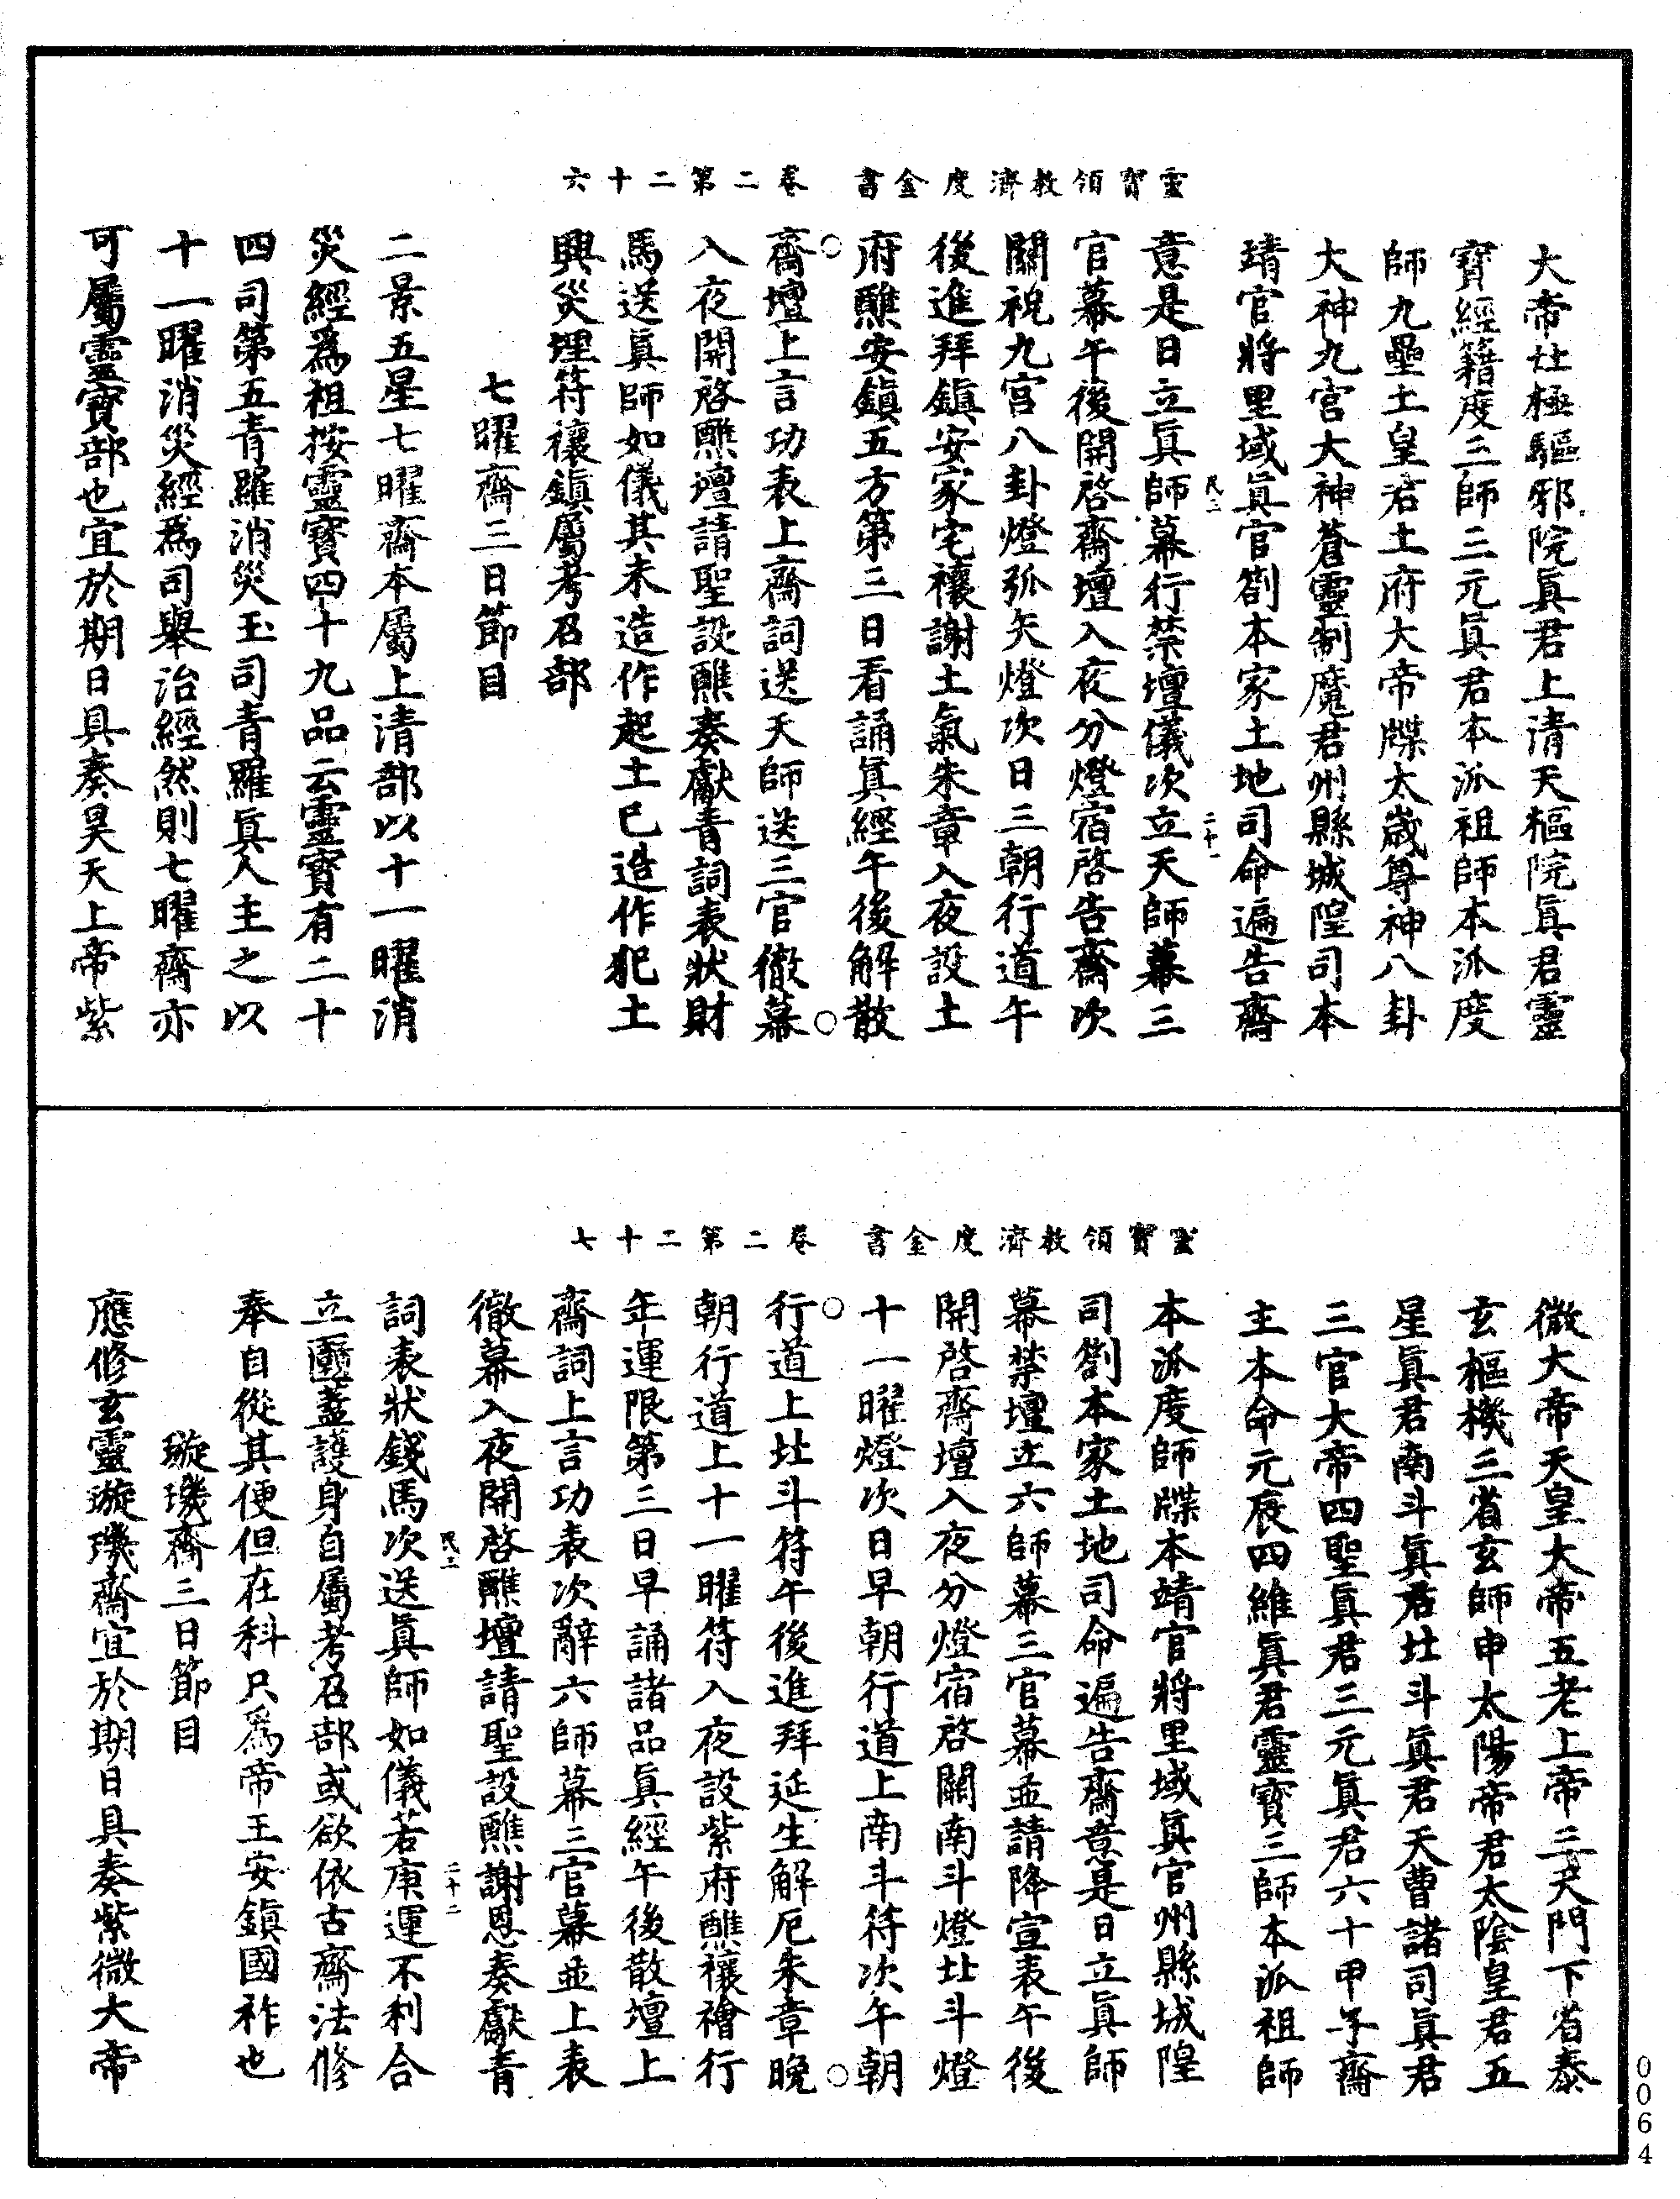 靈寶領教濟度金書　卷二第二十六
大帝北極驅邪院眞君上清天樞院眞君靈
寶經籍度三師三元眞君本派祖師本派度
師九壘土皇君土府大帝牒太歲尊神八卦
大神九宮大神蒼靈制魔君州縣城隍司本
靖官將里域眞官劄本家土地司命遍告齋
意是日立眞師幕行禁壇儀次立天師幕三
民二
二十一
官幕午後開啓齋壇入夜分燈宿啓告齋次
關祝九宮八卦燈弧矢燈次日三朝行道午
後進拜鎭安家宅禳謝土氣朱章入夜設土
府醮安鎭五方第三日看誦眞經午後解散
齋壇上言功表上齋詞送天師送三官徹幕
入夜開啓醮壇請聖設醮奏獻青詞表狀財
馬送眞師如儀其未造作起土已造作犯土
興災埋符禳鎭屬考召部
七曜齋三日節目
二景五星七曜齋本屬上清部以十一曜消
災經爲祖按靈寶四十九品云靈寶有二十
四司第五青羅消災玉司青羅眞人主之以
十一曜消災經爲司舉治經然則七曜齋亦
可屬靈寶部也宜於期日具奏昊天上帝紫
靈寶領教濟度金書　卷二第二十七
微大帝天皇大帝五老上帝三天門下省泰
玄樞機三省玄師申太陽帝君太陰皇君五
星眞君南斗眞君北斗眞君天曹諸司眞君
三官大帝四聖眞君三元眞君六十甲子齋
主本命元辰四維眞君靈寶三師本派祖師
本派度師牒本靖官將里域眞官州縣城隍
司劄本家土地司命遍告齋意是日立眞師
幕禁壇立六師幕三官幕並請降宣表午後
開啓齋壇入夜分燈宿啓關南斗燈北斗燈
十一曜燈次日早朝行道上南斗符次午朝
行道上北斗符午後進拜延生解厄朱章晚
朝行道上十一曜符入夜設紫府醮禳禬行
年運限第三日早誦諸品眞經午後散壇上
齋詞上言功表次辭六師幕三官幕並上表
徹幕入夜開啓醮壇請聖設醮謝恩奏獻青
民二
二十二
詞表狀錢馬次送眞師如儀若庚運不利合
立圝蓋護身自屬考召部或欲依古齋法修
奉自從其便但在科只爲帝王安鎭國祚也
璇璣齋三日節目
應修玄靈璇璣齋宜於期日具奏紫微大帝
0064